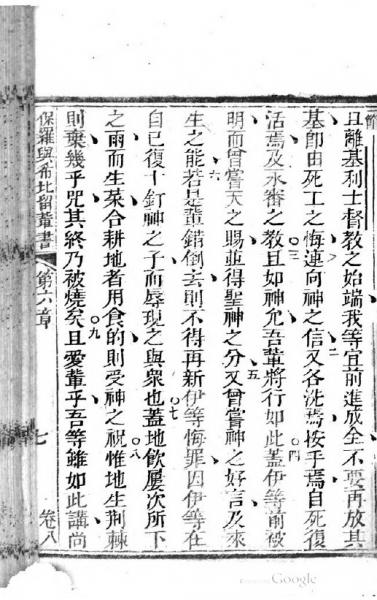 節
且離基利士督教之始端我等宜前進成全不要再放其
基即由死工之悔連向神之信又各洗焉按手焉自死復
活焉及永審之教且如神允吾輩將行如此蓋伊等前被
明而曾嘗天之賜並得聖神之分又曾嘗神之好言及來
生之能若是輩錯倒去則不得再新伊等悔罪因伊等在
自己復十釘神之子而辱現之與衆也蓋地飲屢次所下
之雨而生菜合耕地者用食的則受神之祝惟地生荆棘
則棄幾乎咒其終乃被燒矣且愛輩乎吾等雖如此講尚
二
三
四
五
六
七
八
九
保羅與希比留輩書
第六章
七
卷八
Google